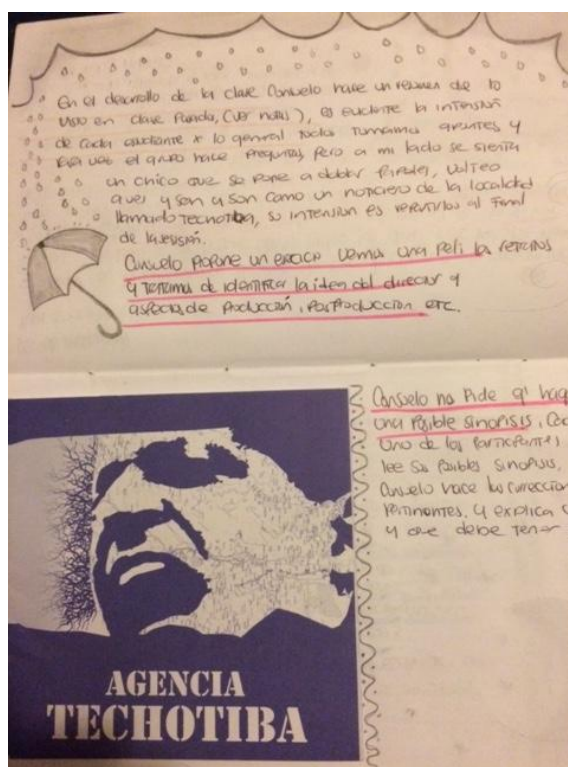 En el desarrollo de la clase Consuelo hace un resumen de lo
visto en clase Pasada, (ver notas), es evidente la intension
de cada estudiante x lo general todos tomamos apuntes y
rara vez el grupo hace preguntas, pero a mi lado se sienta
un chico que se pone a doblar papeles, volteo
a ver y son como un noticiero de la localidad
llamado Techotiba, su intension es repartirlos al final
de la sesión.
Consuelo propone un ejercicio vemos una peli la
y tratamos de identificar la idea del director y
aspectos de Producción, PostProducción etc.
Consuelo no Pide q' hag
una posible sinopsis,
uno de los participantes
lee su posibles sinopsis,
Consuelo hace las correccion
Pertinentes, y explica
y que debe tener
AGENCIA
TECHOTIBA